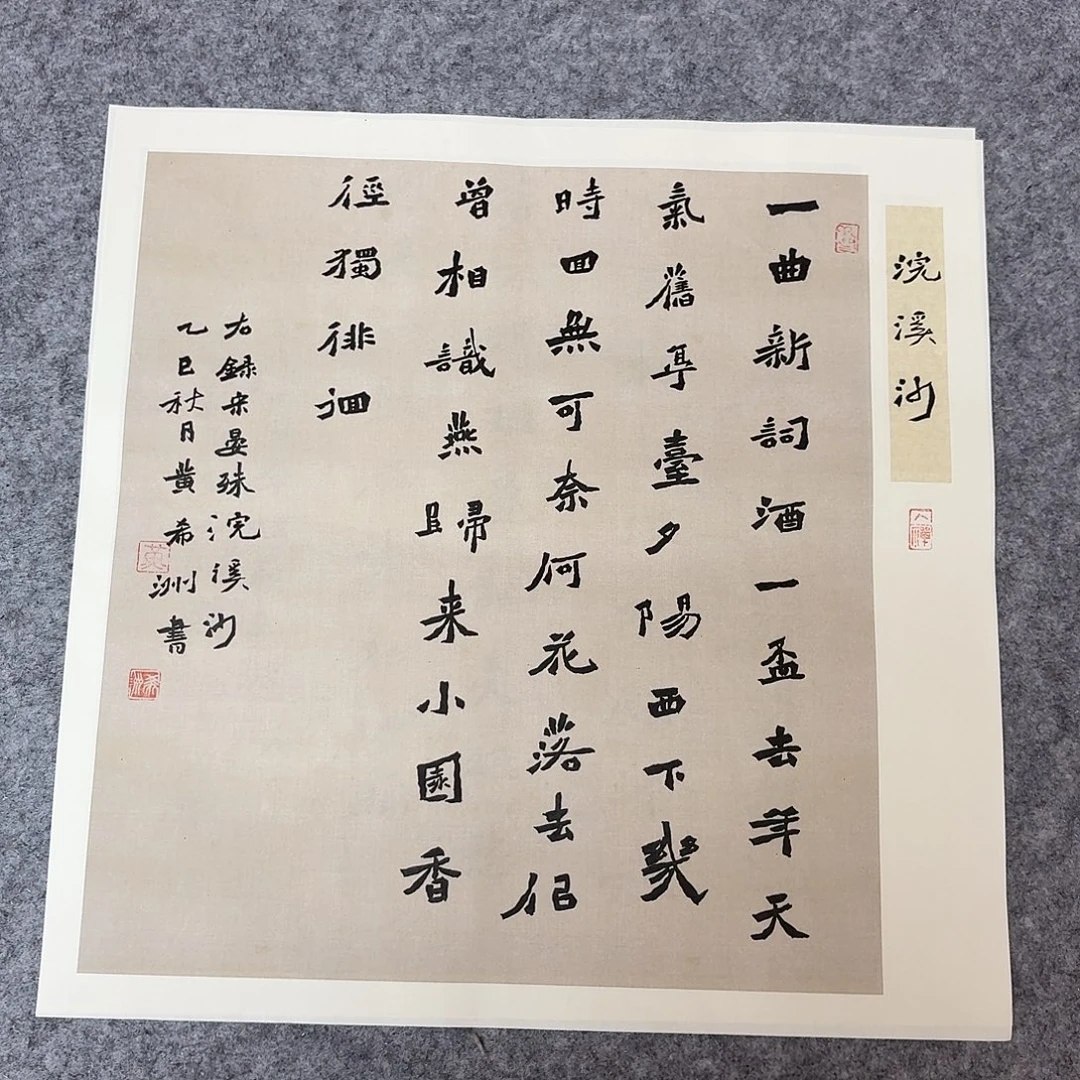 浣溪沙
一曲新詞酒一盃去年天
氣舊亭臺夕陽西下幾
時回無可奈何花落去侣
曾相識燕歸来小園香
徑獨徘徊
右録宋晏殊浣溪沙
乙巳秋月黄希洲書